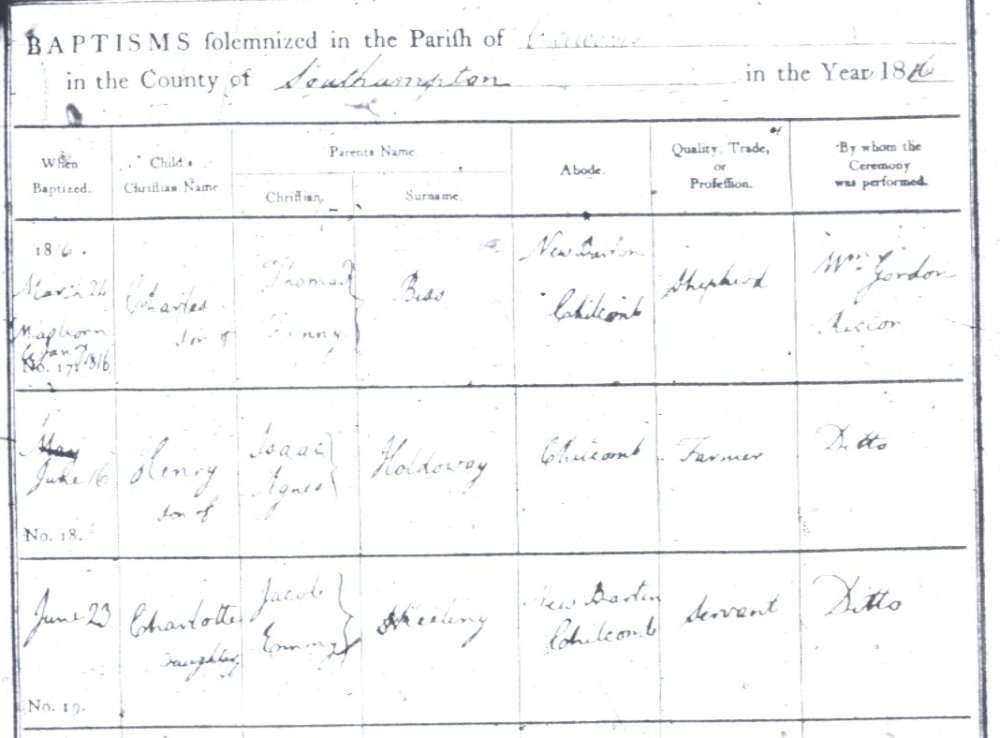 BAPTISMS solemnized in the Parish of
in the County of Southampton in the Year 1816
When Baptized.
Child's Christian Name
Parents Name.
Christian.
Surname.
Abode.
Quality, Trade, or Profession.
By whom the Ceremony was performed.
1816.
March 24
born
Jany 1816
No. 17.
Charles
son of
Thomas
Fanny
New Barton
Chilcomb
Shepherd
Wm Gordon
May
June 16
No. 18.
Henry
son of
Isaac
Agnes
Holdoway
Chilcomb
Farmer
Ditto
June 23
No. 19.
Charlotte
Daughter
Jacob
Emmy
New Bartin
Chilcomb
Servant
Ditto